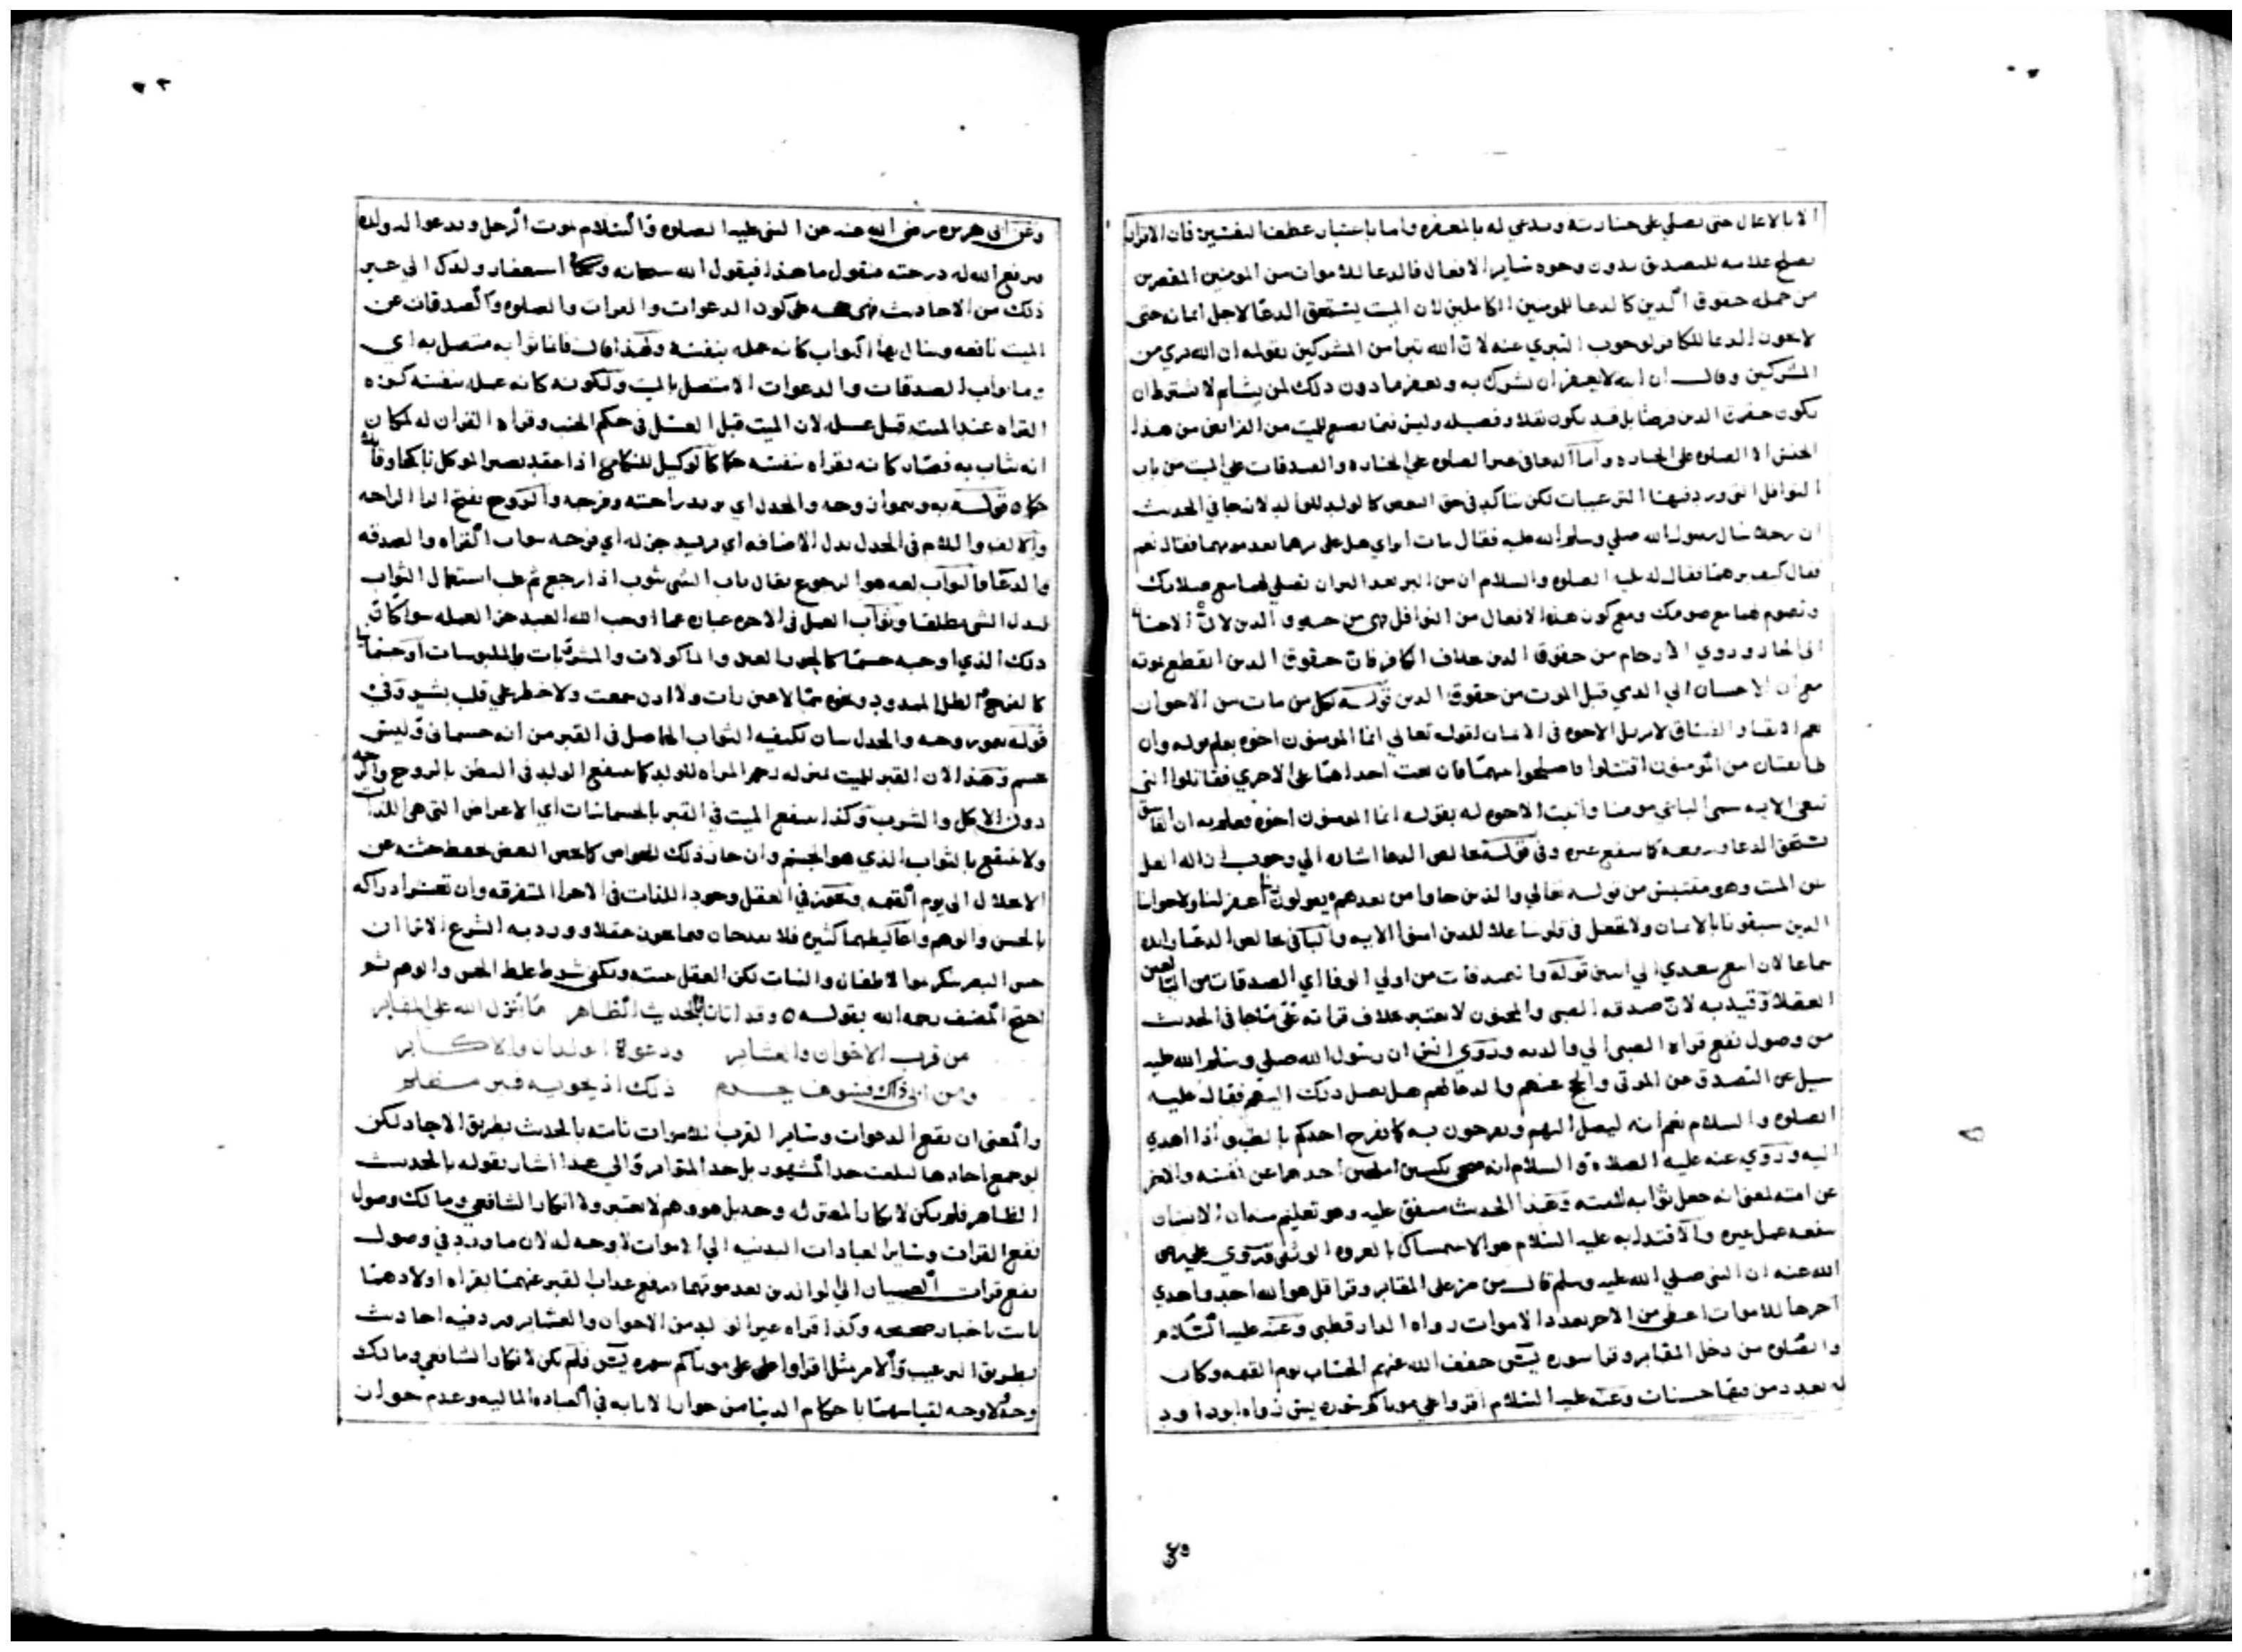 الا بالاعمال حتى يصلي على جنازته ويدعي له بالمغفرة واما باعتبار عطف فان الاقرار
يصلح علامه للتصديق بدون وجود ساير الافعال فالدعا للاموات من المومنين المقصرين
من جمله حقوق الدين كالدعا للمومنين الكاملين لان الميت يستحق الدعا لاجل ايمانه حتى
لا يجوز الدعا للكافر لوجوب التبري عنه لان الله تبرا من المشركين بقوله ان الله بري من
المشركين وقال ان الله لا يغفر ان يشرك به ويغفر ما دون ذلك لمن يشا ثم لا يشترط ان
يكون حقوق الدين فرضا بل قد يكون نفلا وفضيله وليس فيما يصنع للميت من الفرايض من هذا
الجنس الا الصلوه على الجنازه واما الدعا في غير الصلوه على الجنازه والصدقات على الميت من باب
النوافل التي ورد فيها الترغيبات لكن يتاكد في حق البعض كالولد للوالد لانه جا في الحديث
ان رجلا سال رسول الله صلي وسلم الله عليه فقال مات ابواي هل علي برهما بعد موتهما فقال نعم
فقال كيف برهما فقال له عليه الصلوه والسلام ان من البر بعد البر ان تصلي لهما مع صلاتك
وتصوم لهما مع صومك ومع كون هذه الافعال من النوافل هي من حقوق الدين لان الاحسان
الى الجار وذوي الارحام من حقوق الدين بخلاف الكافر فان حقوق الدين انقطع بموته
مع ان الاحسان الى الذي قبل الموت من حقوق الدين قوله لكل من مات من الاخوان
يعم الاتقيا والفساق لا يزيل الاخوه في الايمان لقوله تعالي انما المومنون اخوه يعلم بقوله وان
طايفتان من المومنين اقتتلوا فاصلحوا بينهما فان بغت احداهما على الاخري فقاتلوا التي
تبغي الايه سمى الباغي مومنا واثبت الاخوه له بقوله انما المومنون اخوه فعلم به ان الفاسق
يستحق الدعا وينفعه كما ينفع غيره وفي قوله خالص الدعا اشاره الي وجوب ازاله الغل
عن الميت وهو مقتبس من قوله تعالي والذين جاوا من بعدهم يقولون ربنا اغفر لنا ولاخواننا
الذين سبقونا بالايمان ولا تجعل في قلوبنا غلا للذين امنوا الايه والبا في خالص الدعا زايده
سماعا لان يتعدي الي اسمين قوله والصدقات من اولي الوفا اي الصدقات من البالغين
العقلا وقيد به لان صدقه الصبي والمجنون لا يعتبر بخلاف قراته على ما جا في الحديث
من وصول نفع قراه الصبي الى والديه وروي انس ان رسول الله صلي وسلم الله عليه
سيل عن التصدق عن الموتى والحج عنهم والدعا لهم هل يصل ذلك اليهم فقال عليه
الصلوه والسلام نعم انه ليصل اليهم ويفرحون به كما يفرح احدكم بالطبق اذا اهدي
اليه وروي عنه عليه الصلاة والسلام انه ضحى بكبشين املحين احدهما عن نفسه والاخر
عن امته يعني انه جعل ثوابه لامته وهذا الحديث متفق عليه وهو تعليم منه ان الانسان
ينفعه عمل غيره والاقتدا به عليه السلام هو الاستمساك بالعروه الوثقى وروي علي رضي
الله عنه ان النبي صلي الله عليه وسلم قال من مر على المقابر وقرا قل هو الله احد واهدي
اجرها للاموات اعطى من الاجر بعدد الاموات رواه الدارقطني وعنه عليه السلام
والصلوه من دخل المقابر وقرا سوره يس خفف الله عنهم الحساب يوم القيمه وكان
له بعدد من فيها حسنات وعنه عليه السلام اقروا على موتاكم سوره يس رواه ابو داود
وعن ابي هريره رضي الله عنه عن النبي عليه الصلوه والسلام يموت الرجل ويدعوا له ولده
فيرفع الله له درجته فيقول ما هذا فيقول الله سبحانه استغفار ولدك الي غير
ذلك من الاحاديث كون الدعوات والقرات والصلوه والصدقات عن
الميت نافعه وينال بها الثواب كانه عمله بنفسه ولهذا قال فانما ثوابه متصل به اي
وما ثواب الصدقات والدعوات الا متصل بالميت ولكونه كانه عمله بنفسه كره
القراه عند الميت قبل غسله لان الميت قبل الغسل في حكم الجنب وقراه القران له لمكان
انه يثاب به فصار كانه يقراه بنفسه حكما كالوكيل للنكاح اذا عقد يصير الموكل ناكحا
حكما قوله به وروحه والجدل اي يريد راحته وفرحه والروح بفتح الرا الراحه
والالف واللام في الجدل بدل الاضافه اي يزيد جزله اي فرحه ثواب القراه والصدقه
والدعا والثواب لغه هو الرجوع يقال ثاب الشي يثوب اذا رجع ثم غلب استعمال الثواب
لبدل الشي مطلقا وثواب العمل في الاخره عباره عما اوجب الله العبد من العمله سوا كان
ذلك الذي اوجبه جسما كالحور العين والماكولات والمشروبات والملبوسات او جسمانيا
كالفرح الظل الممدود ونحوه مما لا عين رات ولا اذن سمعت ولا خطر علي قلب بشر وفي
قوله روحه والجدل بيان لكيفيه الثواب الحاصل في القبر من انه جسماني وليس
بجسم وهذا لان القبر للميت بمنزله رحم المراه للولد كما ينتفع الولد في البطن بالروح والراحه
دون الاكل والشرب وكذا ينتفع الميت في القبر بالجسمانيات اي الاعراض التي هي اللذات
ولا ينتفع بالثواب الذي هو الجسم وان جاز ذلك للخواص كما خص البعض بحفظ جثته عن
الانحلال الى يوم القيمه ويجوز في العقل وجود اللذات في الاجزا المتفرقه وان تعسر ادراكه
بالحس والوهم واغاليطهما كثيره فلا يقدحان فيما يجوز عقلا وورد به الشرع الا ترا ان
حس البصر ينكر نمو الاطفال والنبات لكن العقل يثبته وشرط غلط الحس والوهم
احتج المصنف رحمه الله بقوله وقد اتانا بالحديث الظاهر ما ينزل الله على المقابر
من قرب الاخوان والعشاير ودعوة الولدان والاكابر
ومن ابى ذاك فسوف يحرم ذلك اذ يحويه قبر مظلم
والمعنى ان نفع الدعوات وساير القرب للاموات ثابته بالحديث بطريق الاحاد لكن
لو جمع احادها لبلغت حد المشهور بل حد المتواتر والى هذا اشار بقوله بالحديث
الظاهر فلم يكن لانكار المعتزله وجه بل هو وهم لا يعتبر ولا انكار الشافعي ومالك وصول
نفع القرات وساير العبادات البدنيه الى الاموات لا وجه له لان ما ورد في وصول
نفع قرات الصبيان الي الوالدين بعد موتهما برفع عذاب القبر عنهما بقراه اولادهما
ثابت باخبار صحيحه وكذا قراه غير الولد من الاخوان والعشاير ورد فيه احاديث
بطريق الترغيب والامر مثل اقراوا على موتاكم سوره يس فلم يكن لانكار الشافعي ومالك
وجه ولا وجه لقياسهما باحكام الدنيا من جواز الانابه في العباده الماليه وعدم جواز